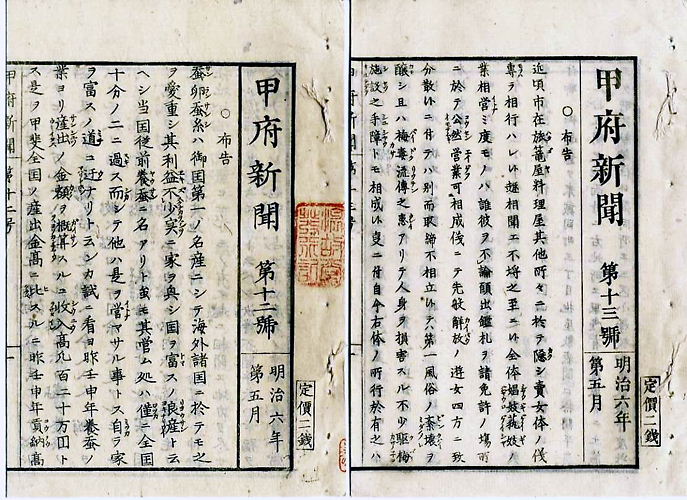 定價二錢
明治六年
第五月
甲府新聞 第十三號
○布告
近頃市在旅籠屋料理屋其他所々ニ於テ隠シ賣女体ノ儀
専ラ相行ハレ候趣相聞エ不埒之至ニ候全体娼妓藝妓ノ
業相営ミ度モノハ誰彼ヲ不論願出鑑札ヲ請免許ノ場所
ニ於テ公然営業可相成候ニテ先般解放ノ遊女四方ニ致
分散候ニ付テハ別而取締不相立候テハ第一風俗ノ紊壊ヲ
醸シ且ハ梅毒流傳之患アリテ人身ヲ損害スル不少駆梅
施設之手障トモ相成候ニ付自今右体ノ所行於有之ハ
甲府新聞第十三号
定價二錢
明治六年
第五月
甲府新聞 第十二號
○布告
蚕卵蚕糸ハ御国第一ノ名産ニシテ海外諸国ニ於テモ之
ヲ愛重シ其利益不少実ニ家ヲ興シ国ヲ富スノ良産ト云
ヘシ当国従前養蚕ニ名アリト虽モ其営ム処ハ僅ニ全国
十分ノ二ニ過ス而シテ他ハ是ヲ営マサル事トス自ラ家
ヲ富スノ道ニ迂ナリト云ンカ試ニ看ヨ昨壬申年養蚕ノ
業ヨリ産出ノ金額ヲ概算スルニ收入高凡百二十万円ト
ス是ヲ甲斐全国ノ産出金高ニ比スルニ昨壬申年貢納高
甲府新聞第十二号